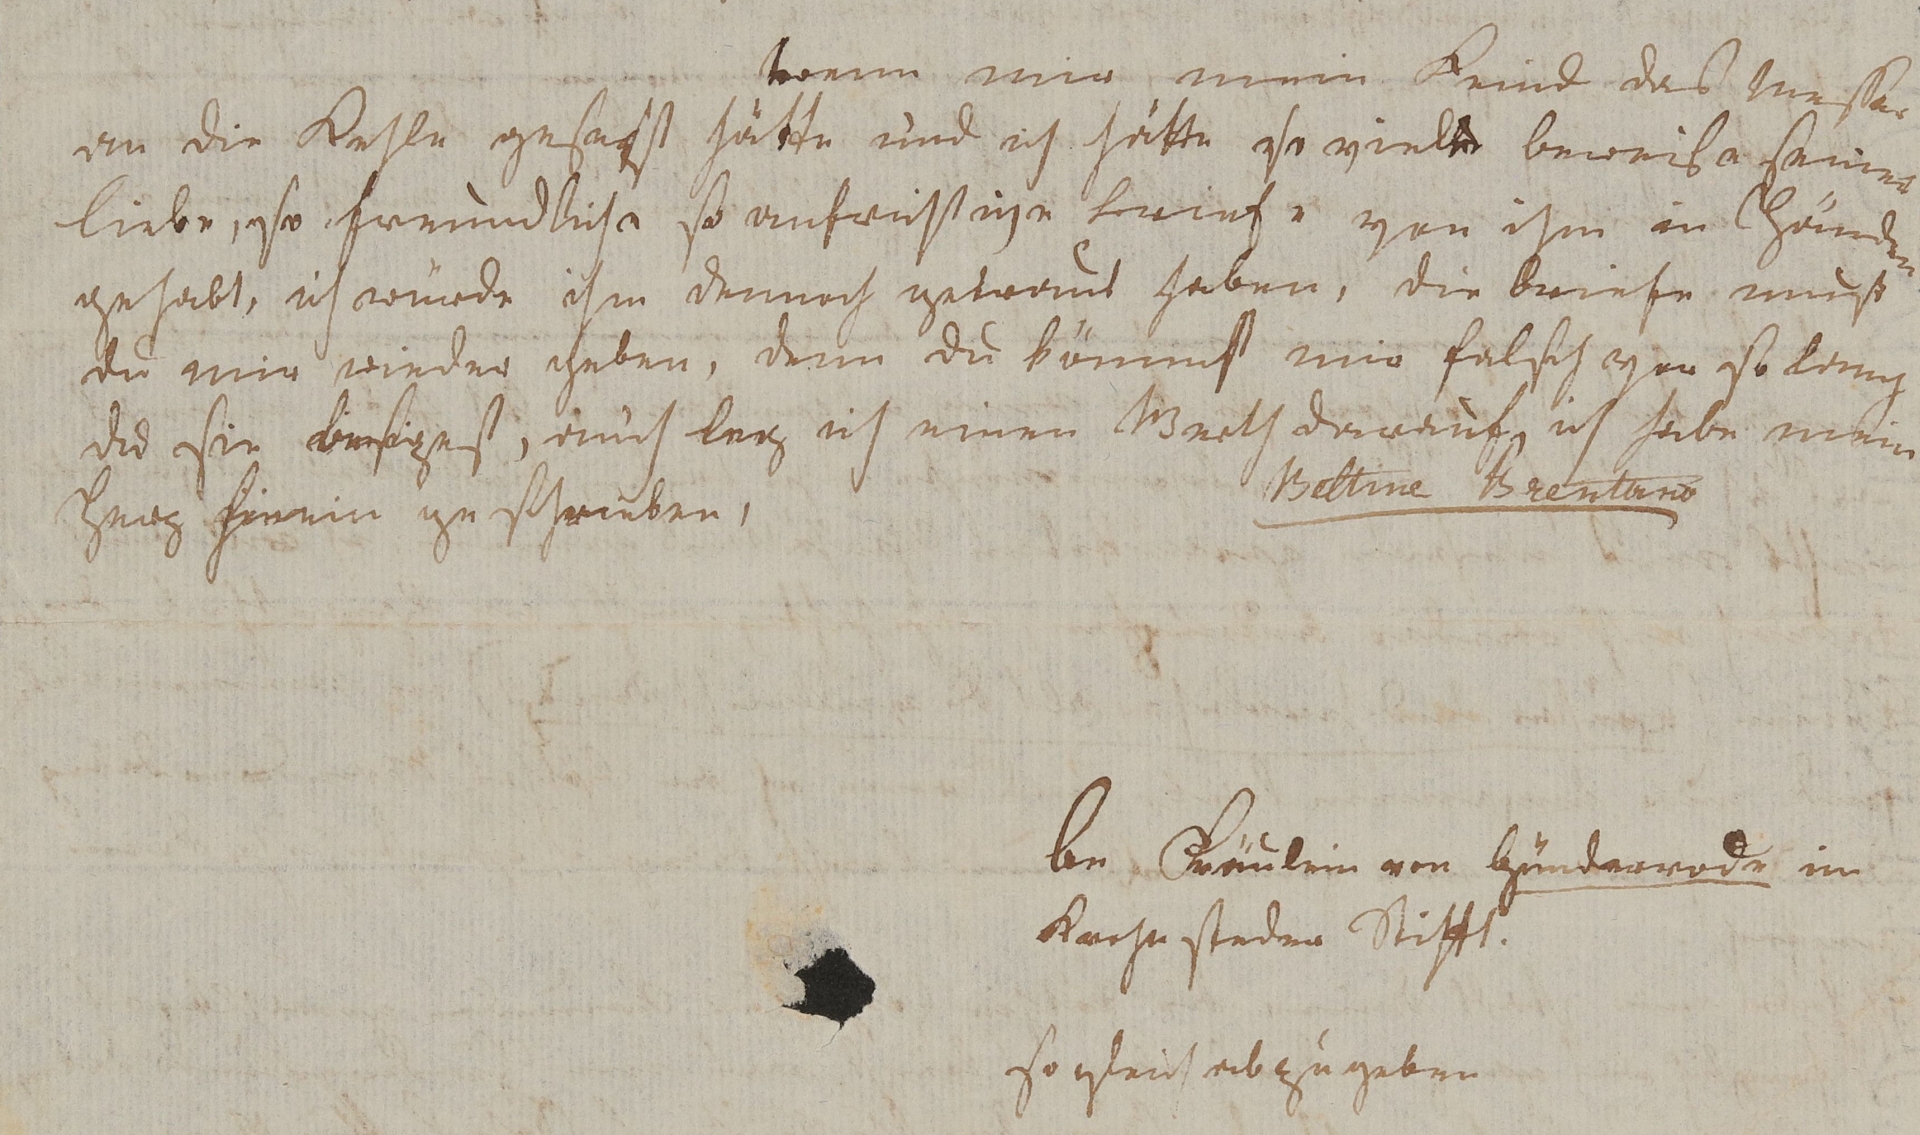 wenn mir mein Feind das Messer
an die Kehle gesezt hätte und ich hätte so viele beweise seiner
liebe, so freundliche so aufrichtige briefe von ihm in Händen
gehabt, ich würde ihm dennoch getraut haben, die briefe must
du mir wieder geben, denn du kömmst mir falsch vor so lang
du sie besizest, auch leg ich einen Werth darauf, ich habe mein
Herz hinein geschrieben,
Bettine Brentano
An Fräulein von Günderrode im
Kronstedter Stifft.
so gleich abzugeben